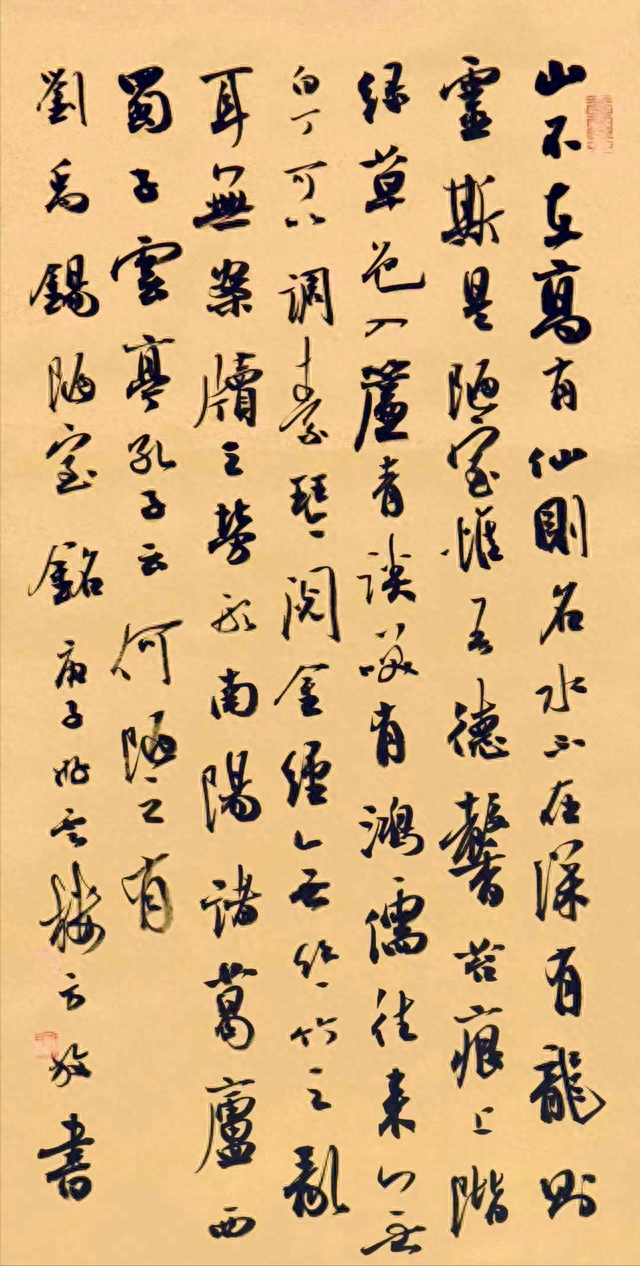 山不在高有仙則名水不在深有龍則
靈斯是陋室惟吾德馨苔痕上階
綠草色入簾青談笑有鴻儒往來無
白丁可以調素琴閱金經無絲竹之亂
耳無案牘之勞形南陽諸葛廬西
蜀子雲亭孔子云何陋之有
劉禹錫陋室銘庚子雲樓方書